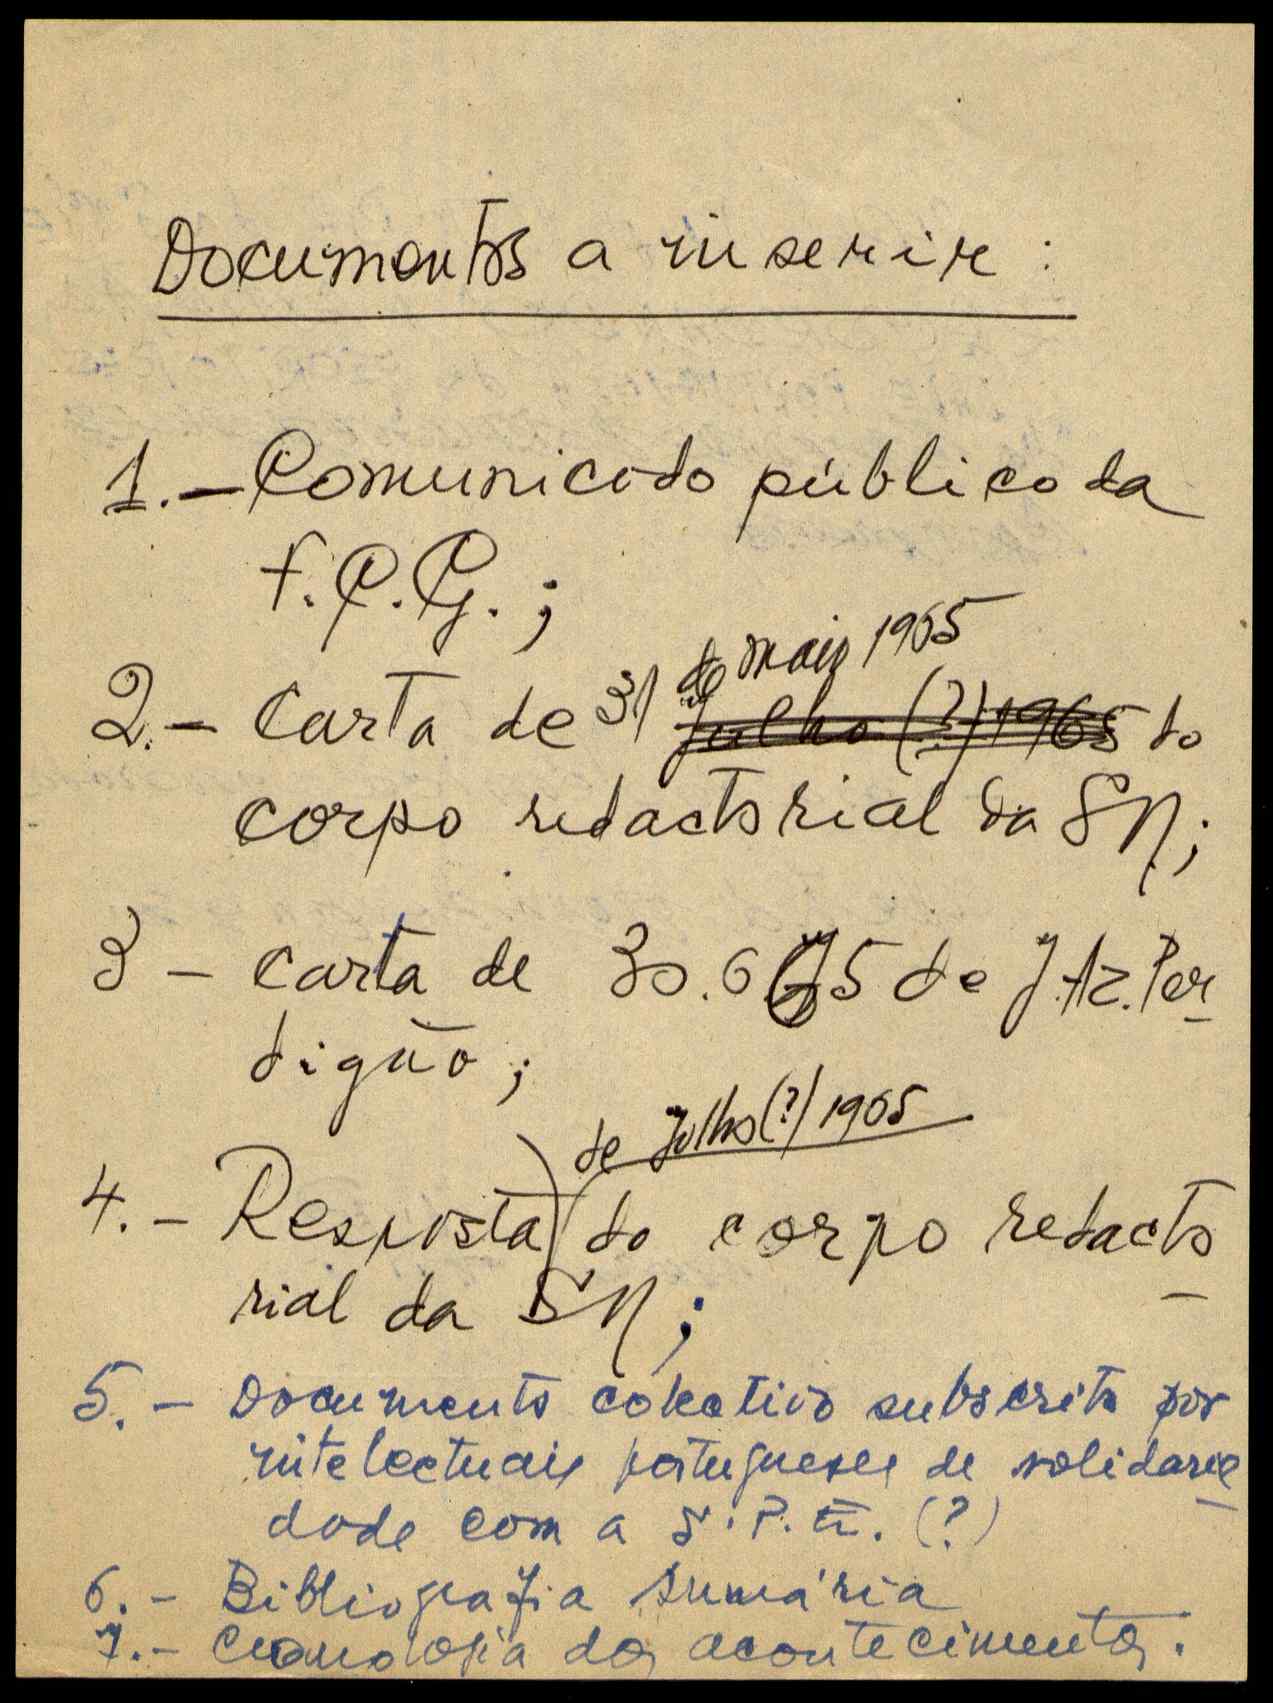 Documentos a inserir :
1.- Comunicado público da
F.C.G. ;
de maio 1965
2.- Carta de 31 Julho (?) 1965 do
corpo redactorial da SN;
3 - Carta de 30.6.65 de J. Az. Per
digão ;
de Julho (?) 1965
4. - Resposta do corpo redacto
rial da SN;
5. - Documento colectivo subscrito por
intelectuais portugueses de solidarie
dade com a S.P.E. (?)
6. - Bibliografia sumária
7. - Cronologia dos acontecimentos.